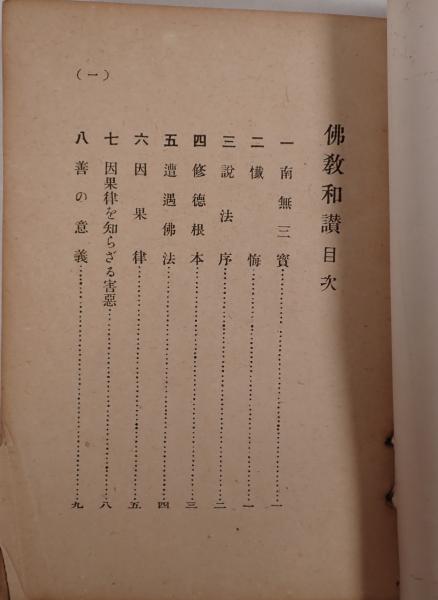 佛敎和讃目次
一 南無三寳……一
二 懺悔……一
三 說法序……二
四 修德根本……三
五 遭遇佛法……四
六 因果律……五
七 因果律を知らざる害惡……八
八 善の意義……九
(一)